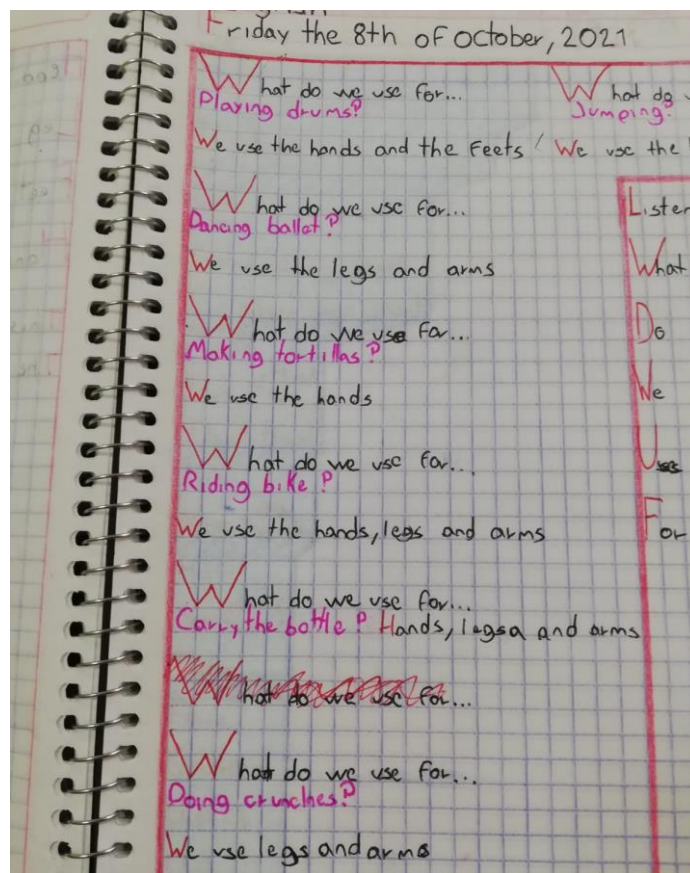 Friday the 8th of October, 2021
What do we use for...
Playing drums?
We use the hands and the Feets
What do we use for...
Dancing ballet?
We use the legs and arms
What do we use for...
Making tortillas?
We use the hands
What do we use for...
Riding bike?
We use the hands, legs and arms
What do we use for...
Carry the bottle? Hands, legsa and arms
What do we use for...
What do we use for...
Doing crunches?
We use legs and arms
What do
Jumping?
We use the
Listen
What
Do
We
Use
For